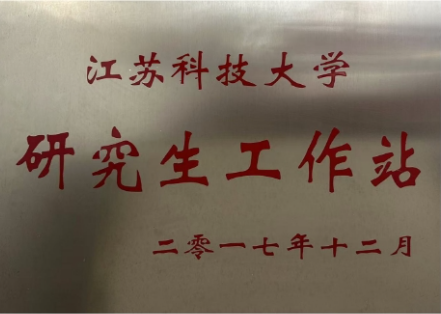 江苏科技大学
研究生工作站
二零一七年十二月